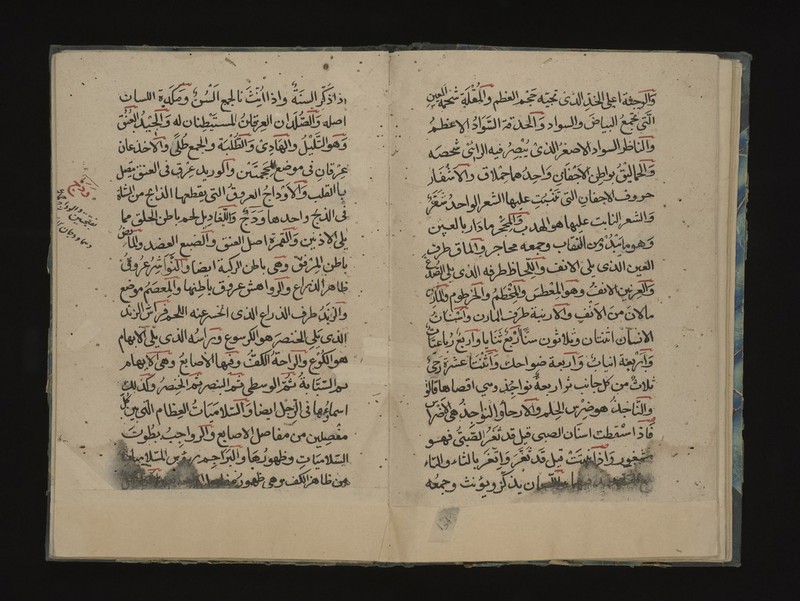 والوجنة اعلى الخد الذى تحته حجم العظم والمُقْلَة شحمة العين
التى تجمع البياض والسواد والحدقة السَّوَادُ الاعظم
والناظر السواد الاصغر الذى يُبْصِرُ فيه الرائى شخصَه
والحماليق بواطن الاجفان واحدها حملاق والاشفار
حروف الاجفان التى تَنْبُتُ عليها الشعر الواحد شُفْرٌ
والشعر النابت عليها هو الهدب والمَحْجِر ما دار بالعين
وهو ما يبدو من النقاب وجمعه محاجر والماق طرف
العين الذى يلى الانف واللحاظ طرفه الذى يلى الصدغ
والعرنين الانفُ وهو المَعْطِس والمَخْطِم والخرطوم والمارن
ما لان من الانف والارنبة طرف المارن واسنان
الانسان اثنتان وثلاثون سنّا اربع ثنايا واربع رباعيات
واربعة انياب واربعة ضواحك واثنتا عشرة رحى
ثلاث من كل جانب ثم اربعة نواجذ وهى اقصاها قالوا
والناجذ هو ضرس الحلم والارحاء والنواجذ هى الاضراس
فاذا سقطت اسنان الصبى قيل قد ثُغِرَ الصَّبِىُّ فهو
مثغور واذا نبتت قيل قد اثّغر واتّغر بالثاء والتاء
واللسان يذكر ويونث وجمعه
اذا ذكر السنة واذا انّث فالجمع السُنٌ وعَكَدَة اللسان
اصله والصُّرَدَان العرقان المستبطنان له والجِيْد العُنُق
وهو التَّلِيْلُ والهادِى والطُّلْيَة والجمع طُلًى والاخدعان
عِرقان فى موضع المِحْجَمَتَيْن والوريد عِرق فى العنق يتصل
بالقلب والاوداج العروق التى يقطعها الذابح من الشاة
فى الذبح واحدها وَدَجٌ واللغاديد لحم باطن الحلق مما
يلى الاذنين والقَصَرَة اصل العنق والضبع العضد والمأبض
باطن المرفق وهى باطن الركبة ايضا والنواشر عروق
ظاهر الذراع والرواهش عروق باطنها والمعصم موضع
والزند طرف الذراع الذى انحسر عنه اللحم فرأس الزند
الذى يلى الخنصر هو الكرسوع ورأسه الذى يلى الابهام
هو الكُوع والراحة الكف وفيها الاصابع وهى الابهام
ثم السبّابة ثم الوسطى ثم البنصر ثم الخنصر وكذلك
اسماؤها فى الرجل ايضا والسلاميات العظام التى بين كل
مفصلين من مفاصل الاصابع والرواجب بطون
السلاميات وظهورها والبراجم رؤس السلاميات
من ظاهر الكف وهى ظهور مفاصل
ودج